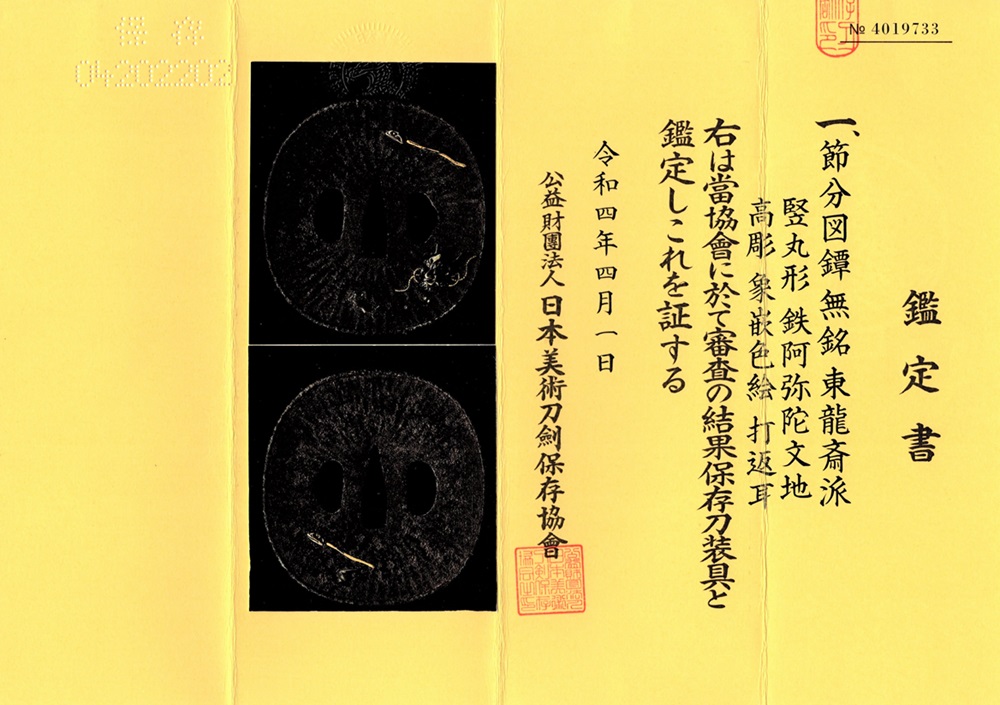 鑑定書
一、節分図鐔 無銘 東龍斎派
竪丸形 鉄阿弥陀文地
高彫 象嵌色絵 打返耳
右は當協會に於て審査の結果保存刀装具と
鑑定しこれを証する
令和四年四月一日
公益財團法人 日本美術刀劍保存協會
№ 4019733
保存
04202202